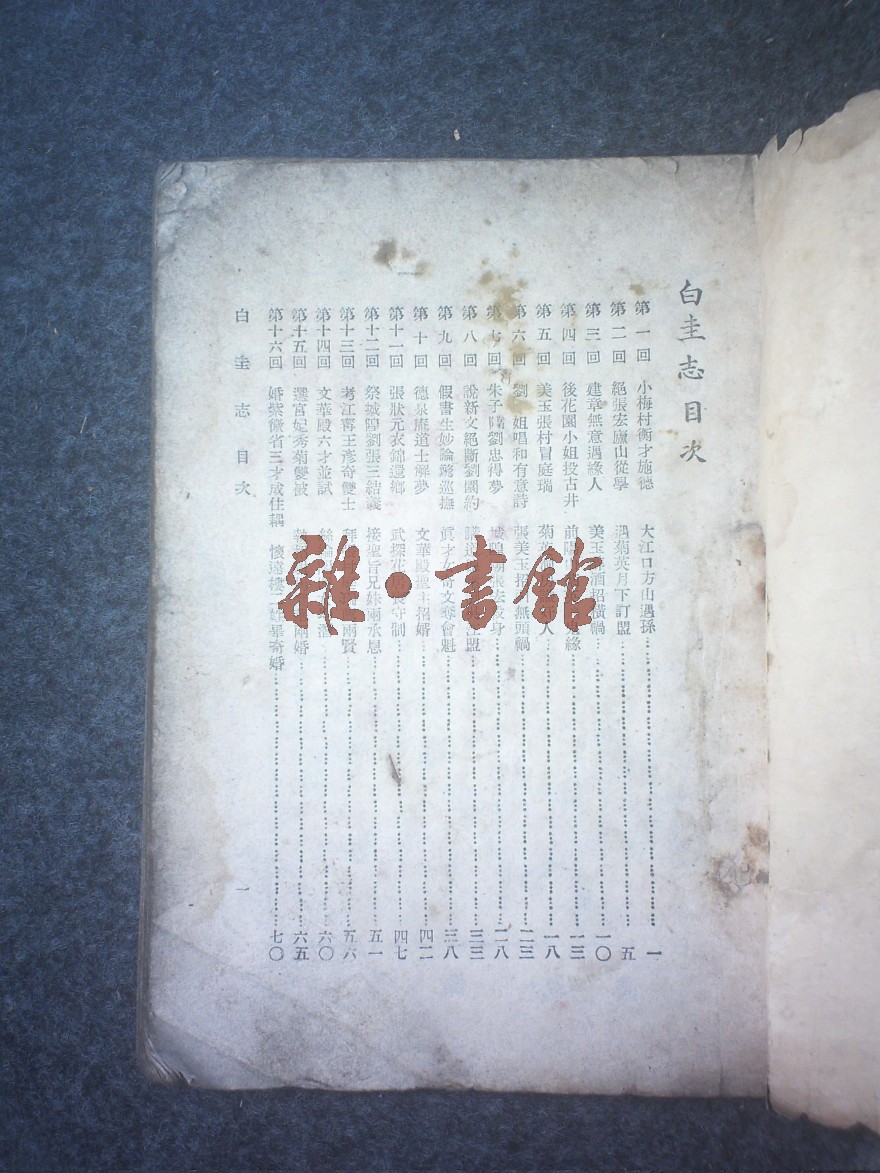 白圭志目次
第一回 小梅村衡才施德 大江口方山遇孫 一
第二回 絕張宏廬山從學 遇菊英月下訂盟 五
第三回 建章無意遇緣人 美玉 酒招橫禍 一〇
第四回 後花園小姐投古井 前 緣 一三
第五回 美玉張村冒庭瑞 菊 人 一八
第六回 劉小姐唱和有意詩 張美玉招 無頭禍 二三
第七回 朱子 劉忠得夢 城隍 張宏 身 二八
第八回 說新文絕斷劉國約 盟 三三
第九回 假書生妙論驚巡撫 真才 奇文奪會魁 三八
第十回 德泉庵道士解夢 文華殿聖主招婚 四二
第十一回 張狀元衣錦還鄉 武探花居喪守制 四七
第十二回 祭城隍劉張三結義 接聖旨兄妹兩承恩 五一
第十三回 考江西王彥奇雙士 拜 兩賢 五六
第十四回 文華殿六才並試 絲 六〇
第十五回 選宮妃秀菊雙被 兩婚 六五
第十六回 婚紫微省三才成佳耦 懷遠樓 畢奇婚 七〇
白圭志目次 一
雜·書館